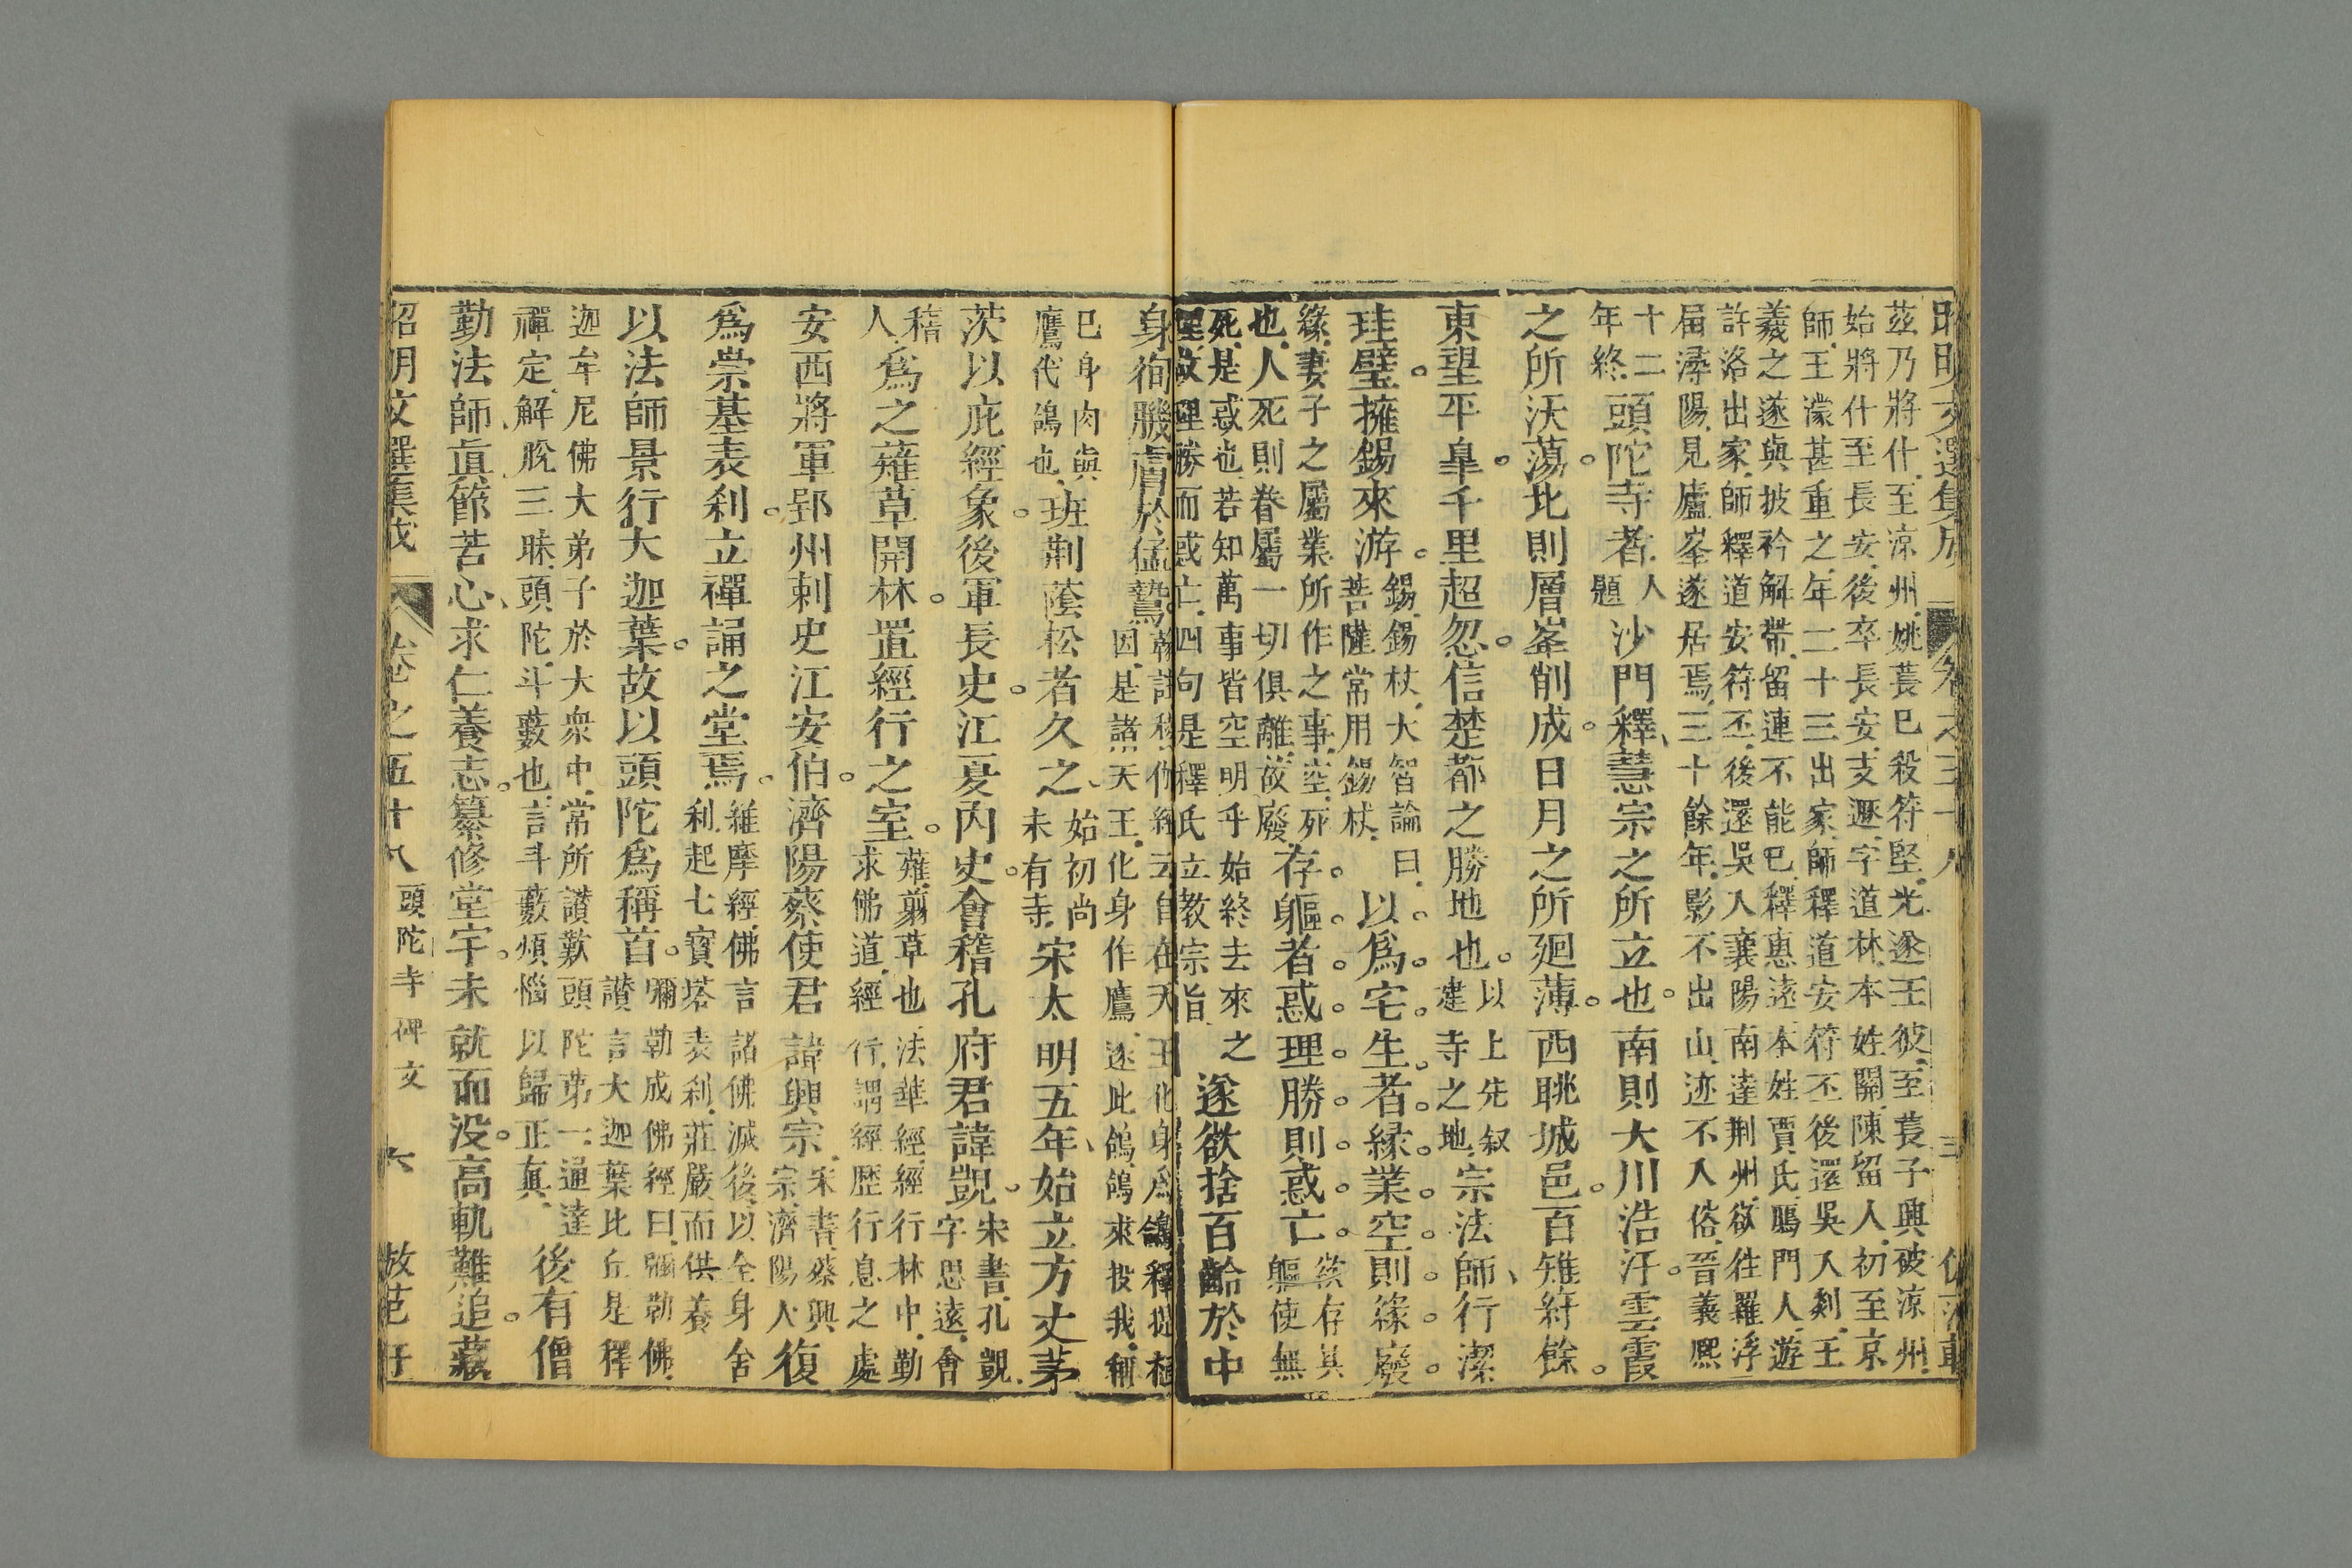 茲乃將什至涼州姚萇已殺符堅光遂王彼至萇子興破涼州
始將什至長安後卒長安支遯字道林本姓關陳留人初至京
師王濛甚重之年二十三出家師釋道安符丕後還吳入剡王
羲之遂與披衿解帶留連不能已釋惠遠本姓賈氏鴈門人遊
許洛出家師釋道安符丕後還吳入襄陽南達荆州欲往羅浮
届潯陽見廬峯遂居焉三十餘年影不出山迹不入俗晉義熙
十二
年終
頭陀寺者
人
題
沙門釋慧宗之所立也南則大川浩汗雲霞
之所沃蕩北則層峯削成日月之所廻薄西眺城邑百雉紆餘
東望平皐千里超忽信楚都之勝地也
以上先叙
建寺之地
宗法師行潔
珪璧擁錫來游
錫錫杖大智論曰
菩薩常用錫杖
以為宅生者緣業空則緣廢
緣妻子之屬業所作之事空死
也人死則眷屬一切俱離故廢
存軀者惑理勝則惑亡
軀使無
死是惑也若知萬事皆空明乎始終去來之
理故理勝而惑亡四句是釋氏立教宗旨
遂欲捨百齡於中
身徇肌膚於猛鷙
因是諸天王化身作鷹遂此鴿鴿來投我稱
己身肉與
鷹代鴿也
班荆蔭松者久之
始初尚
未有寺
宋太明五年始立方丈茅
茨以庇經象後軍長史江夏內史會稽孔府君諱覬
宋書孔覬
字思遠會
稽
人
為之薙草開林置經行之室
薙翦草也法華經經行林中勤
求佛道經行謂經歷行息之處
安西將軍郢州刺史江安伯濟陽蔡使君諱興宗
宋書蔡興
宗濟陽人
復
為崇基表刹立禪誦之堂焉
維摩經佛言諸佛滅後以全身舍
利起七寶塔表刹莊嚴而供養
以法師景行大迦葉故以頭陀為稱首
彌勒成佛經曰彌勒佛
讃言大迦葉比丘是釋
迦牟尼佛大弟子於大衆中常所讃歎頭陀苐一通達
禪定解脫三昧頭陀斗藪也言斗藪煩惱以歸正真
後有僧
勤法師真節苦心求仁養志纂修堂宇未就而没高軌難追藏
昭明文選集成
卷之五十八
頭陀寺碑文
六